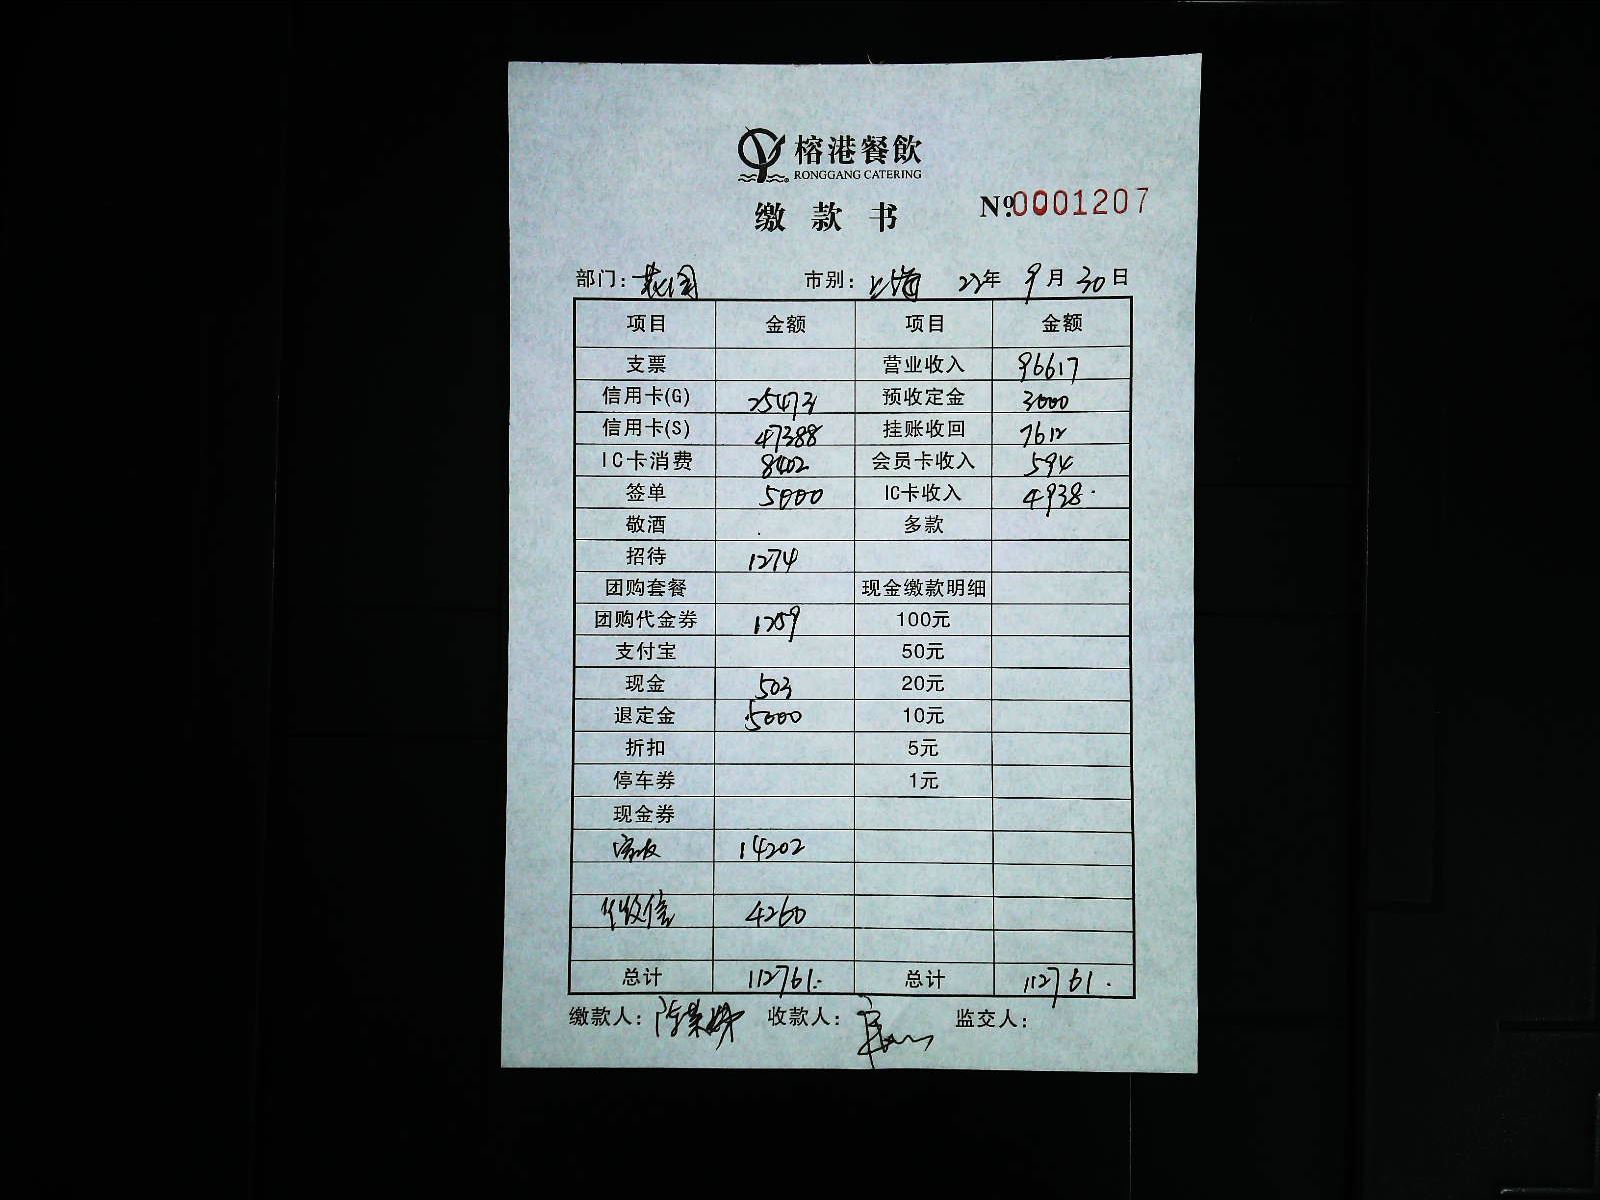 榕港餐飲
RONGGANG CATERING
缴款书
№0001207
部门：花园 市别：上海 22年 9月30日
项目 金额 项目 金额
支票 营业收入 96617
信用卡(G) 25473 预收定金 3000
信用卡(S) 47388 挂账收回 7612
IC卡消费 8402 会员卡收入 594
签单 5000 IC卡收入 4938
敬酒 多款
招待 1274
团购套餐 现金缴款明细
团购代金券 1259 100元
支付宝 50元
现金 503 20元
退定金 5000 10元
折扣 5元
停车券 1元
现金券
14202
4260
总计 112761 总计 112761
缴款人： 收款人： 监交人：